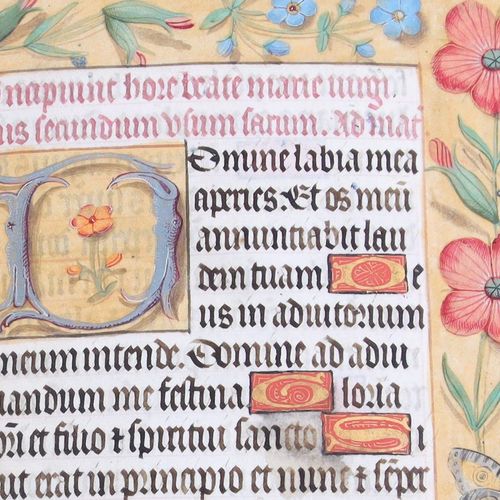 ncipiunt hore beate marie uirgi
nis secundum vsum sarum. Ad mat
Domine labia mea
aperies. Et os meū
annuntiabit lau
dem tuam D e
us in adiutorium
meum intende. Domine ad adiu
uandum me festina G loria
pri et filio ⁊ spiritui sancto S i
cut erat in principio et nunc ⁊ semper